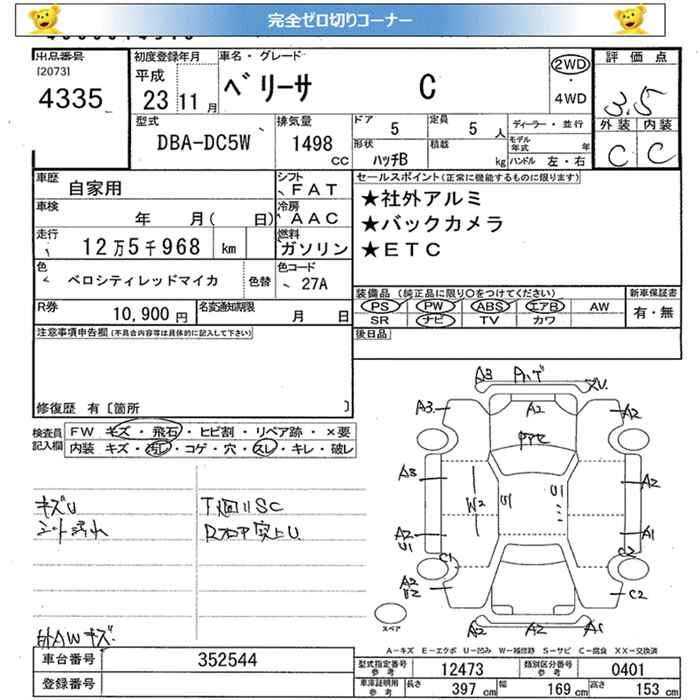 完全ゼロ切りコーナー
出品番号 初度登録年月 車名・グレード 評価点
[2073] 平成 2WD
4335 23 11月 ベリーサ C ・ 3.5
4WD
型式 排気量 ドア 5 定員 5人 ディーラー・並行 外装 内装
DBA-DC5W 1498 cc 形状 ハッチB 積載 kg モデル年式 年 C C
ハンドル 左・右
車歴 自家用 シフト FAT セールスポイント(正常に機能するものに限ります)
車検 年 月( 日) 冷房 AAC ★社外アルミ
走行 12万5千968 km 燃料 ガソリン ★バックカメラ
★ETC
色 ベロシティレッドマイカ 色替 色コード 27A
装備品 (純正品に限り○をつけてください) 新車保証書
R券 10,900円 名変通知期限 月 日 PS PW ABS エアB AW 有・無
SR ナビ TV カワ
注意事項申告欄(不具合内容等は具体的に記入して下さい) 後日品
修復歴 有〔箇所 〕
検査員記入欄 FW キズ・飛石・ヒビ割・リペア跡・×要
内装 キズ・汚れ・コゲ・穴・スレ・キレ・破レ
A3 A2
A3 A2
A2 W2 U1 U1 A2
A2 A1
U1 C1 C2
A2 C2
キズU T廻りSC
シート汚れ Rフロア突上U
A2 A2 A1
スペア
A-キズ E-エクボ U-凹み W-補修跡 S-サビ C-腐食 XX-交換済
車台番号 352544 型式指定番号 参考 12473 類別区分番号 参考 0401
登録番号 車庫証明用 参考 長さ 397cm 幅 169cm 高さ 153cm